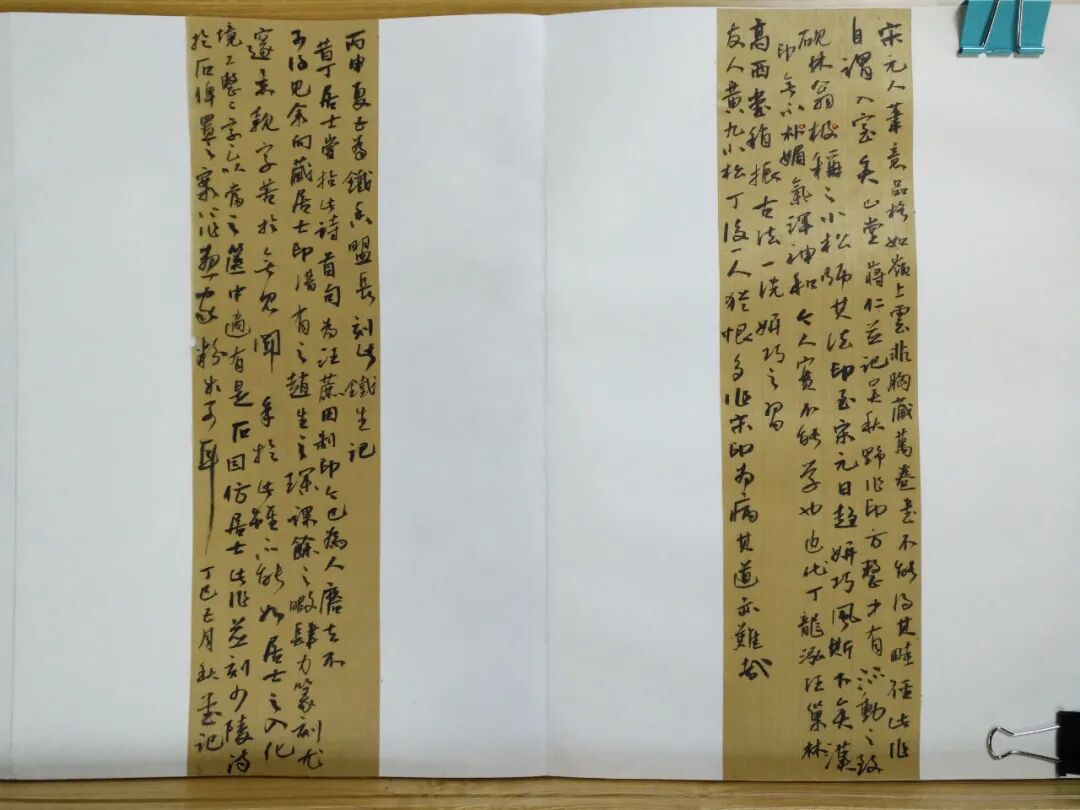 宋元人篆意品格如嶺上雲非胸藏萬卷書不能得其畦徑此作
自謂入室矣山堂蔣仁並記吳秋野作印方整中有流動之致
硯林翁極稱之小松師其法印至宋元日趨妍巧風斯下矣漢
印無不斌媚氣渾神和今人實不能學也近代丁龍泓汪巢林
高西唐稍振古法一洗妍巧之習
友人黃九小松丁後一人猶恨多作宋印為病其道亦難哉
丙申夏五為鐵香盟長刻此鐵生記
昔丁居士嘗拈此詩首句為汪蔗田制印今已為人磨去不
可得見余向藏居士印譜有之趙生之琛課餘之暇肆力篆刻尤
邃意款字苦於無見聞手於此雖不能如居士之入化
境工整二字足以當之篋中適有是石因仿居士此作並刻少陵詩
於石俾置之案頭作粉本可耳
丁巳正月秋堂記